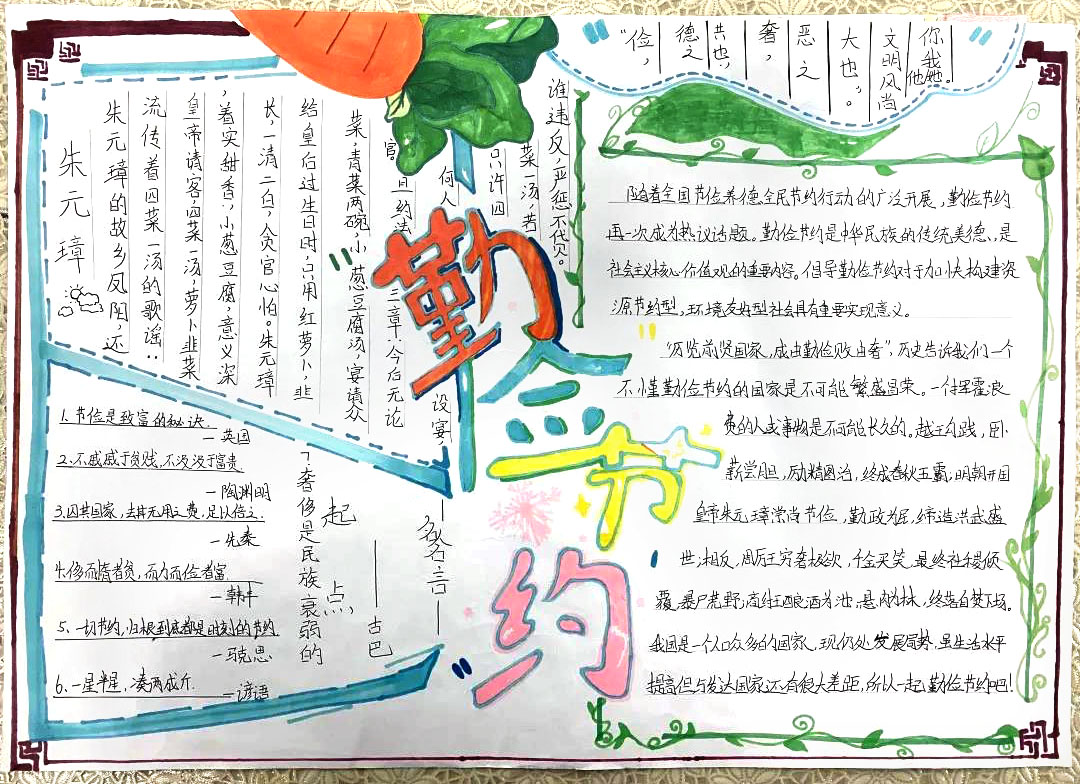 勤俭节约
“俭，
德之
共也，
奢，
恶之
大也”。
文明风尚
你我他她。
朱元璋
朱元璋的故乡凤阳，还
流传着四菜一汤的歌谣：
皇帝请客，四菜一汤，萝卜韭菜
，着实甜香，小葱豆腐，意义深
长，一清二白，贪官心怕。朱元璋
给皇后过生日时，只用红萝卜、韭
菜，青菜两碗，小葱豆腐汤，宴请众
官。且约法三章：今后无论
何人设宴，
只许四
菜一汤，若
谁违反，严惩不贷。
1.节俭是致富的秘诀.
—英国
2.不戚戚于贫贱，不汲汲于富贵
—陶渊明
3.因其国家，去其无用之费，足以倍之.
—先秦
4.侈而惰者贫，而力而俭者富.
—韩非
5、一切节约，归根到底都是时间的节约
—马克思
6、一星半星，凑两成斤.
—谚语
“奢侈是民族衰弱的
起点”
——古巴
—名言—
随着全国节俭养德全民节约行动的广泛开展，勤俭节约
再一次成为热议话题。勤俭节约是中华民族的传统美德，是
社会主义核心价值观的重要内容。倡导勤俭节约对于加快构建资
源节约型，环境友好型社会具有重要实现意义。
“历览前贤国家，成由勤俭败由奢”，历史告诉我们一个
不懂勤俭节约的国家是不可能繁盛昌荣。一付挥霍浪
费的人或事物是不可能长久的。越王勾践，卧
薪尝胆，励精图治，终成春秋五霸，明朝开国
皇帝朱元璋崇尚节俭，勤政为民，缔造洪武盛
世，相反，周厉王穷奢极欲，千金买笑，最终社稷倾
覆，暴尸荒野，商纣王酿酒为池，悬肉为林，终落自焚下场。
我国是一个人口众多的国家，现仍处发展局势，虽生活水平
提高但与发达国家还有很大差距，所以一起勤俭节约吧！